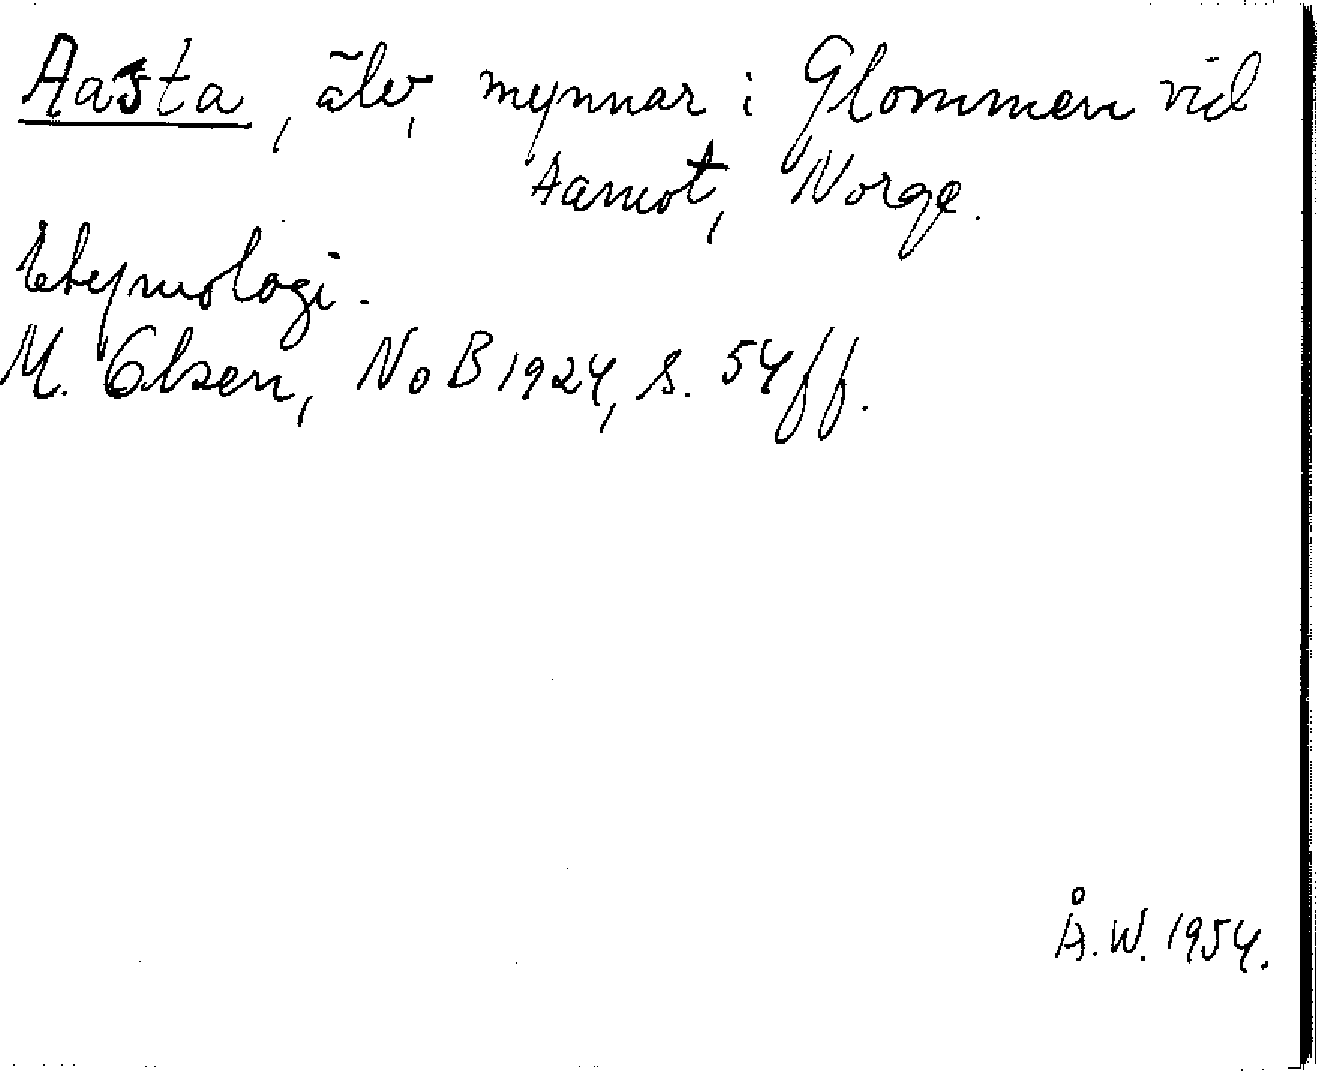 Aasta, älv, mynnar i Glommen vid
Aamot, Norge.
Etymologi.
M. Olsen, NoB 1924, s. 54 ff.
Å.W. 1954.